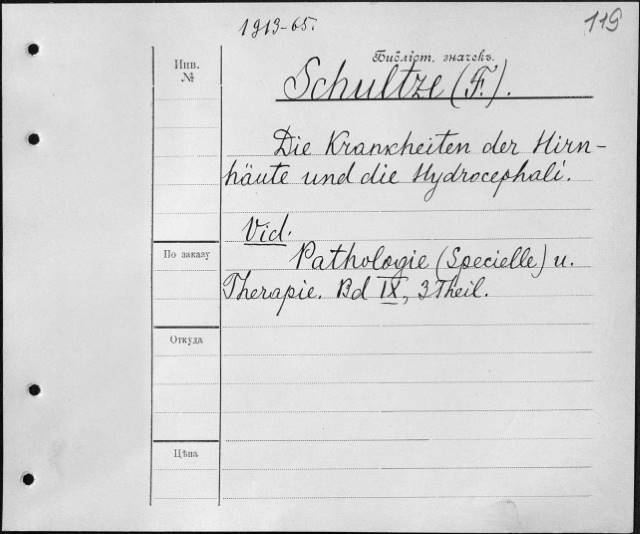 1913-65.
119
Инв.
№
Библіот. значекъ.
Schultze (F.).
Die Krankheiten der Hirn-
häute und die Hydrocephali.
Vid.
По заказу
Pathologie (Specielle) u.
Therapie. Bd IX, 3 Theil.
Откуда
Цѣна